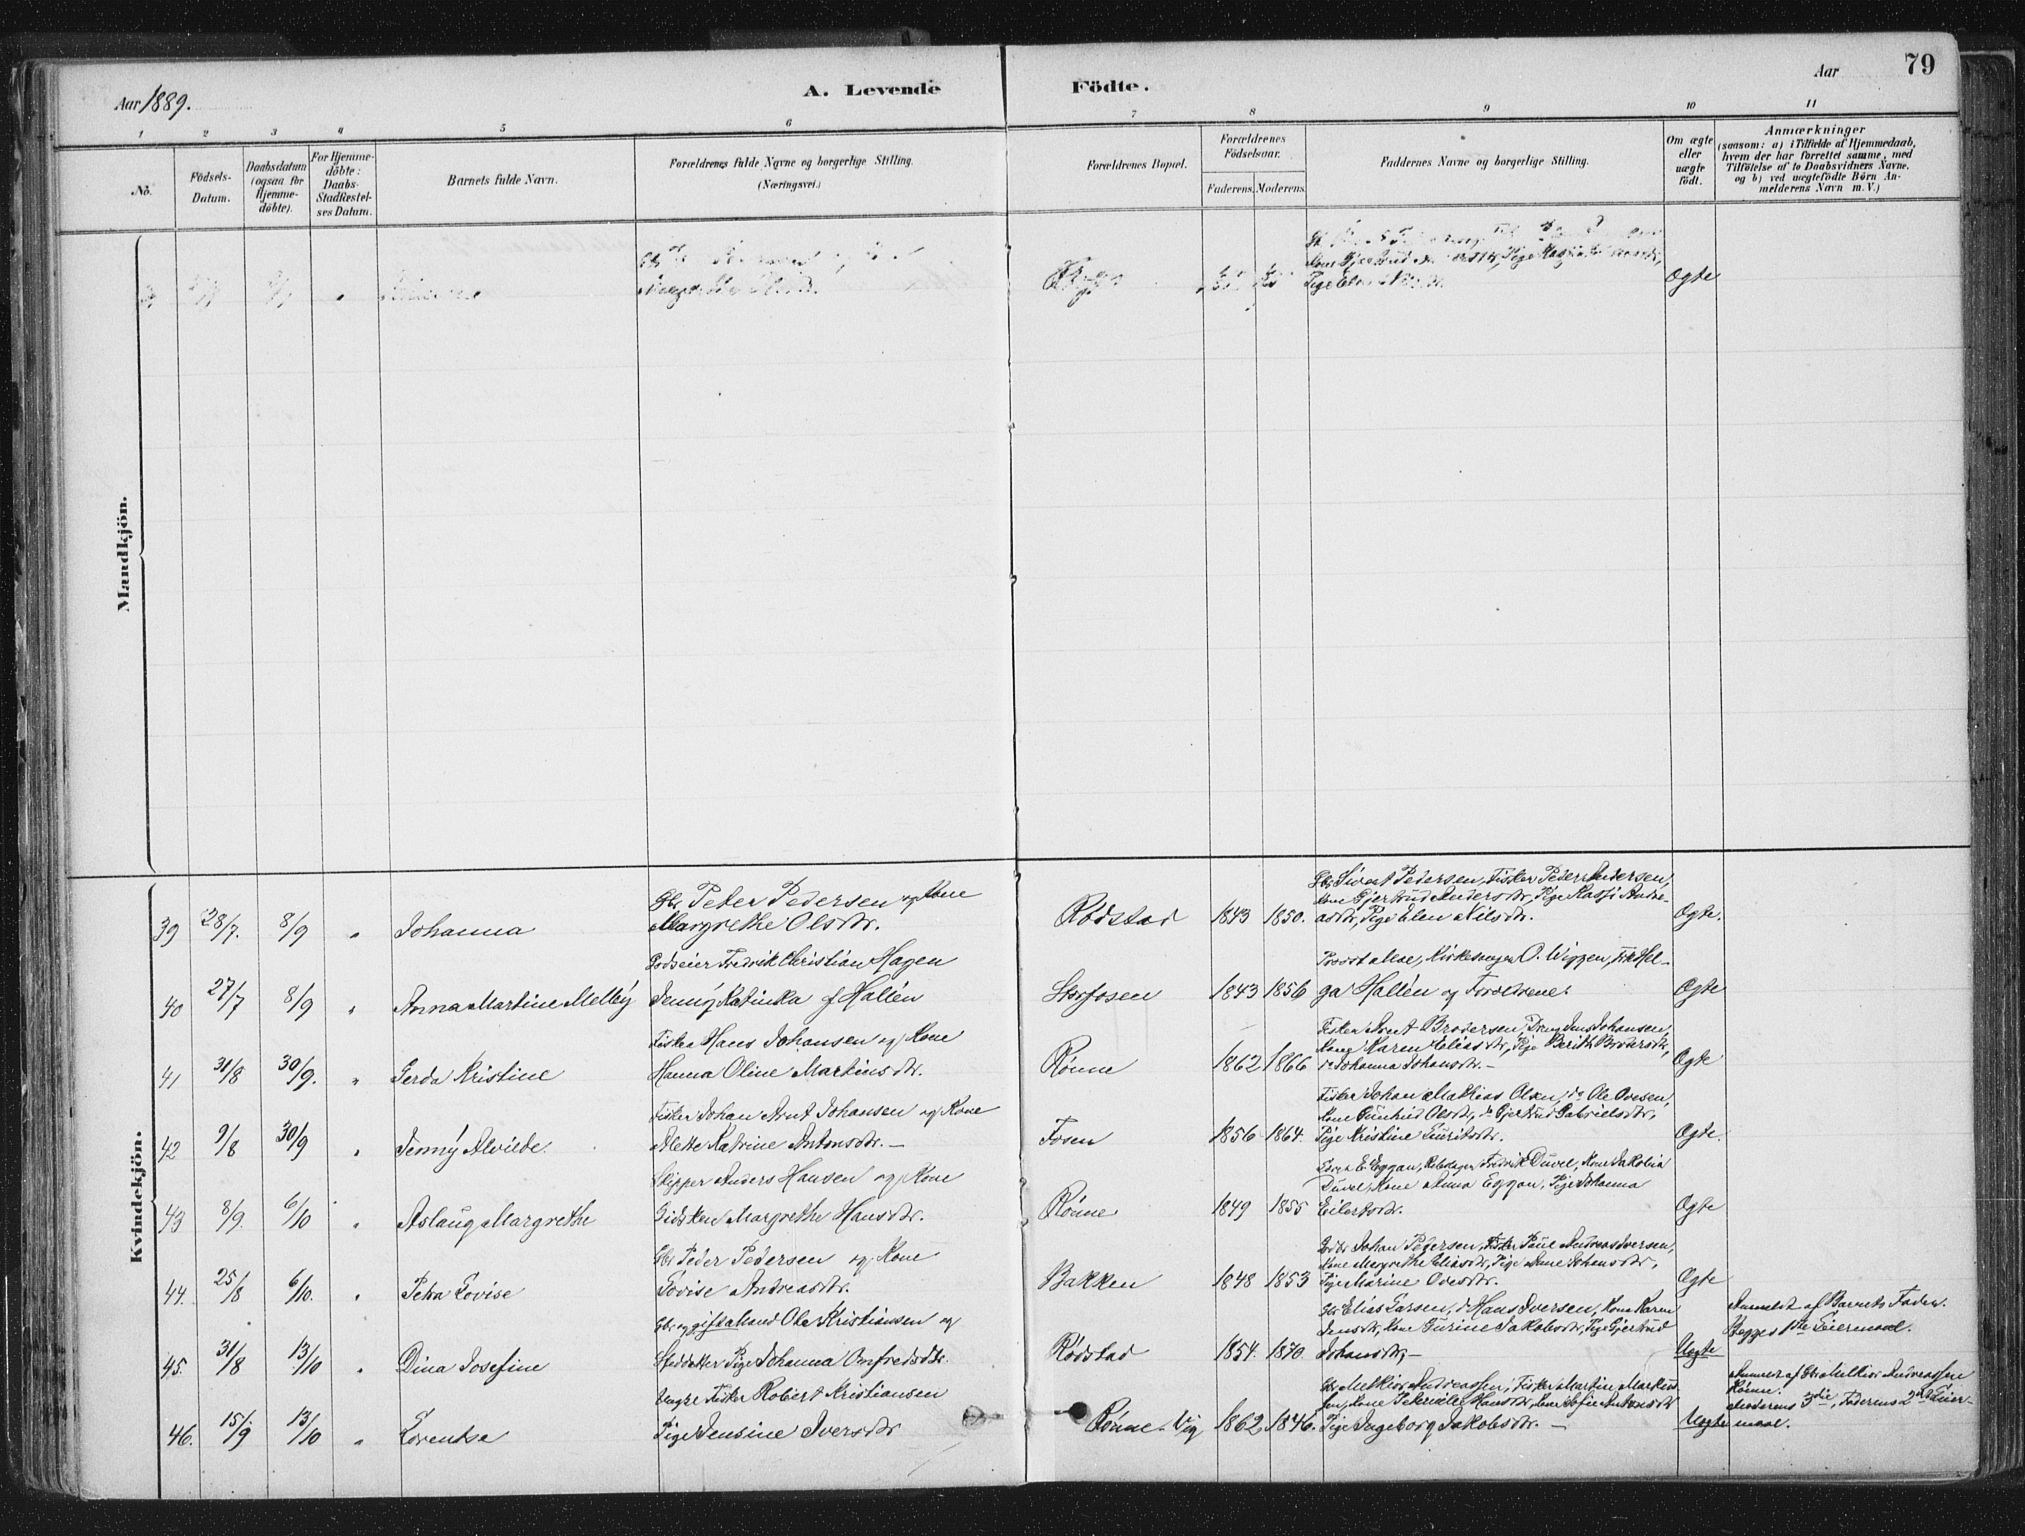 79
Aar 1889.
A. Levende
Födte.
Aar
1 2 3 4 5 6 7 8 9 10 11
No.
Födsels-
Datum.
Daabsdatum
(ogsaa for
Hjemme-
döbte).
For Hjemme-
döbte:
Daabs-
Stadfestel-
ses Datum.
Barnets fulde Navn.
Forældrenes fulde Navne og borgerlige Stilling.
(Næringsvei.)
Forældrenes Bopæl.
Forældrenes
Födselsaar.
Faderens. Moderens.
Faddernes Navne og borgerlige Stilling.
Om ægte
eller
uægte
födt.
Anmærkninger
(saasom: a) i Tilfælde af Hjemmedaab,
hvem der har forrettet samme, med
Tilföielse af to Daabsvidners Navne.
og b) ved uægtefödte Börn An-
melderens Navn m. V.)
Mandkjön.
Ægte
Kvindekjön.
39 28/7. 8/9 " Johanna
Gbr Peter Pedersen og Kone
Margrethe Olsdtr.
Rödstad 1843 1850.
Gbr Sivert Pedersen, Fisker Peder Andersen,
Kone Gjertrud Andersdtr, Pige Kassi Andre-
asdtr, Pige Elen Nilsdtr.
Ægte.
40 27/7 8/9 " Anna Martine Melby
Godseier Fredrik Christian Hagen
Jenny Katinka f. Hallén
Storfosen 1843 1856
Provst Moe, Kirkesanger O. Wiggen, Frk Hel-
ga Hallén og Forældrene.
Ægte
41 31/8 30/9. " Gerda Kristine
Fisker Hans Johansen og Kone
Hanna Oline Martinsdtr.
Rönne 1862 1866
Fisker Arnt Brodersen, Dreng Jens Johansen,
Kone Karen Eliasdtr, Pige Berith Brodersdtr,
do Johanna Johansdtr. -
Ægte
42 9/8 30/9 " Jenny Alvilde.
Fisker Johan Arnt Johansen og Kone
Mette Katrine Antonsdtr. -
Fosen 1856 1864.
Fisker Johan Mathias Olsen, do Ole Ovesen,
Kone Gunhild Olsdtr, do Gjertrud Gabrielsdtr,
Pige Kristine Guritsdtr.
Ægte.
43 8/9. 6/10 " Aslaug Margrethe
Skipper Anders Hansen og Kone
Gidsken Margrethe Hansdtr.
Rönne 1849 1855
E. Eggan, Fredrik Duvel, Kone Jakobia
Duvel, Kone Anna Eggan, Pige Johanna
Eilertsdtr.
Ægte
44. 25/8 6/10. " Petra Lovise
Gbr Peder Pedersen og Kone
Lovise Andreasdtr.
Bakken 1848 1853
Gbr Johan Pedersen, Fisker Paul Andreas Iversen,
Kone Margrethe Eliasdtr, Pige Anne Johansdtr,
Pige Marine Ovesdtr.
Ægte
45. 31/8 13/10 " Dina Josefine
Gbr og gift Mand Ole Kristiansen og
Steddatter Pige Johanna Onfredsdtr.
Rödstad 1854. 1870.
Gbr Elias Larsen, do Hans Iversen, Kone Karen
Jensdtr, Kone Gurine Jakobsdtr, Pige Gjertrud
Johansdtr. -
Uægte
Anmeldt af Barnets Fader.
Begges 1ste Leiermaal.
46. 15/9 13/10 " Lorentse
Ungkr Fisker Robert Kristiansen
Pige Jensine Iversdtr
Rönne-Vig 1862 1846.
Gbr Melkior Andreassen, Fisker Martin Markus-
sen, Kone Petrikke Hansdtr, Kone Sofie Antonsdtr
Pige Ingeborg Jakobsdtr. -
Uægte
Anmeldt af Gbr Melkior Andreassen
Rönne.
Moderens 3die, Faderens 2det Leier-
maal.